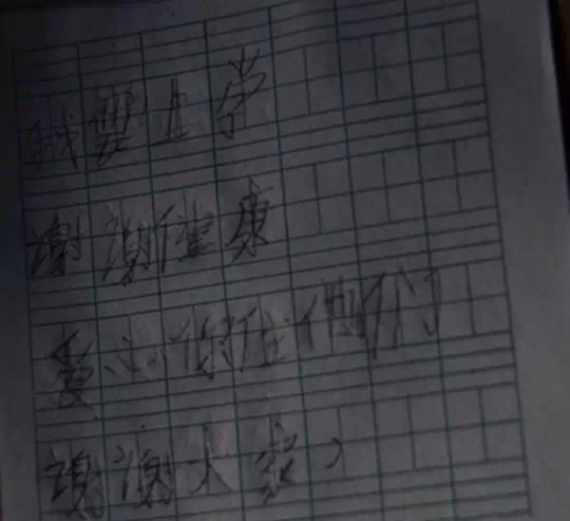 我要上学
谢谢健康
爱心你在他们
谢谢大家